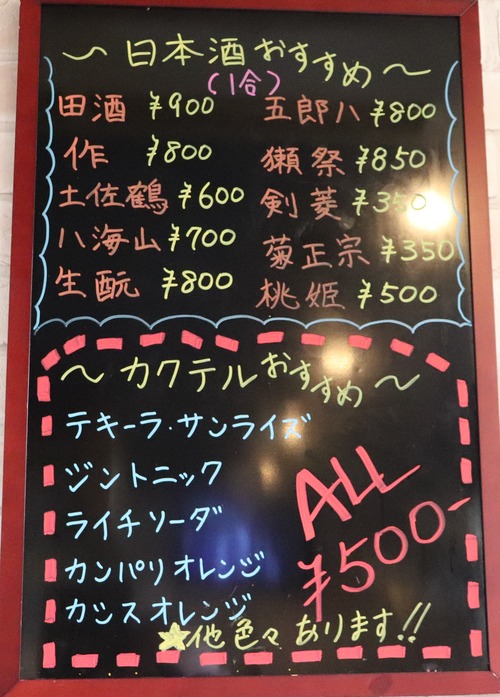 ～日本酒おすすめ～
(1合)
田酒 ¥900
作 ¥800
土佐鶴 ¥600
八海山 ¥700
生酛 ¥800
五郎八 ¥800
獺祭 ¥850
剣菱 ¥350
菊正宗 ¥350
桃姫 ¥500
～カクテルおすすめ～
テキーラ・サンライズ
ジントニック
ライチソーダ
カンパリオレンジ
カシスオレンジ
ALL
¥500-
★他色々あります!!